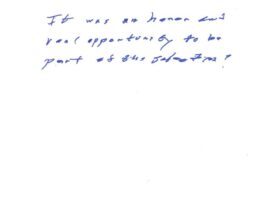 It was an honor and
real opportunity to be
part of the